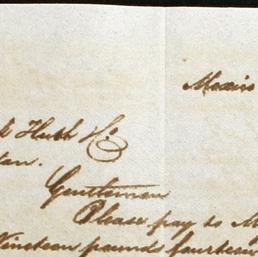 Mexico
Huth &c
Gentlemen
Please pay to M
Nineteen pounds fourteen